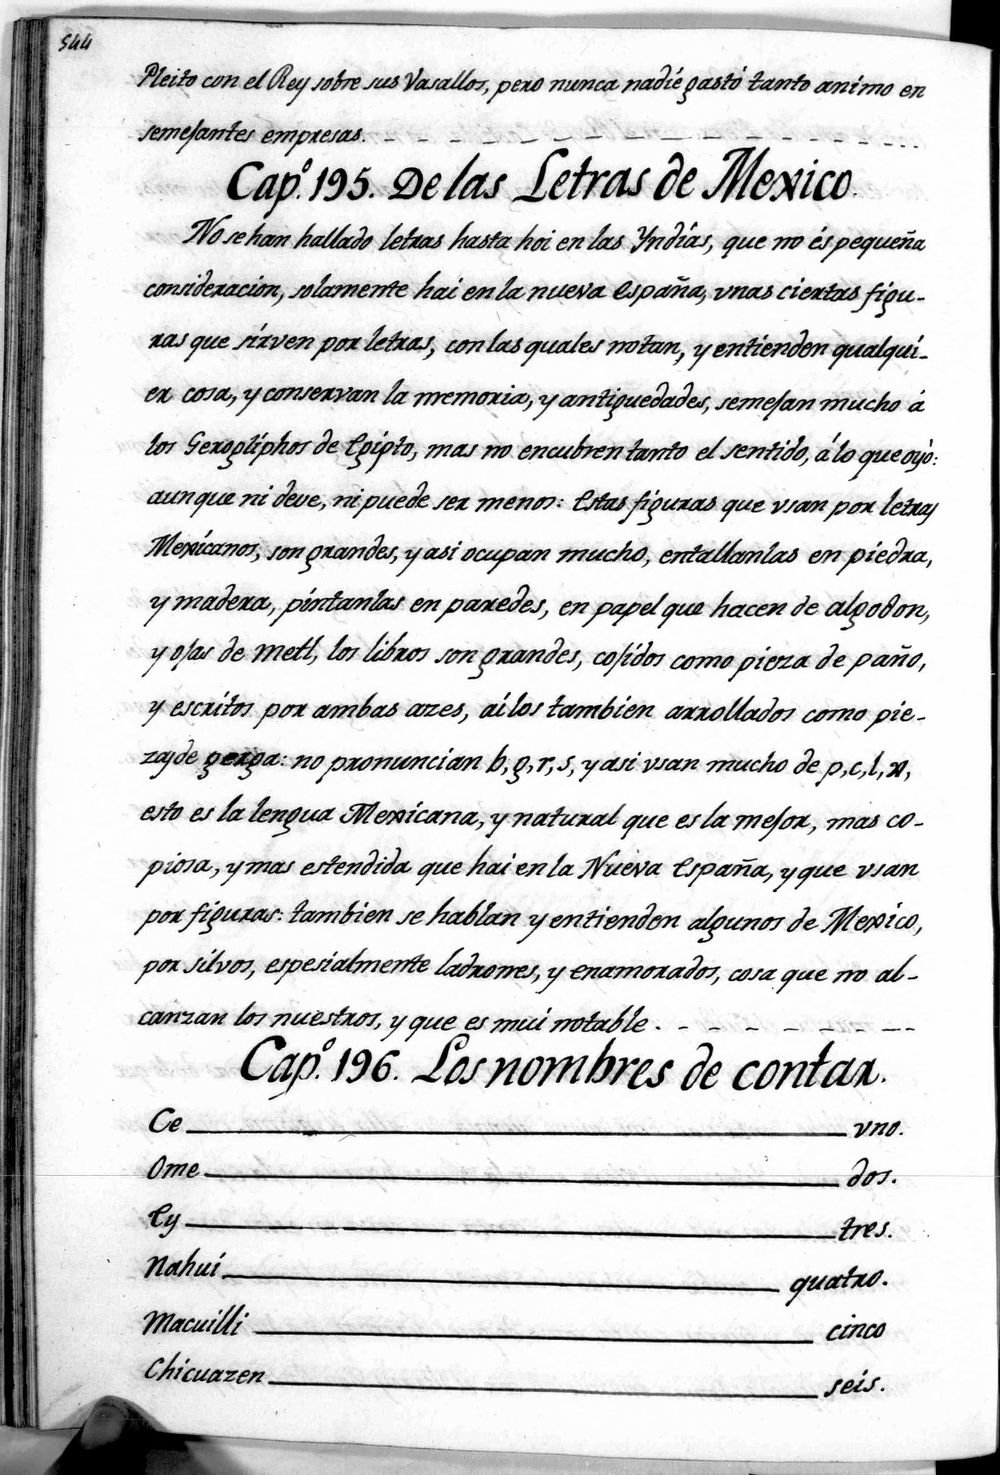 544
Pleito con el Rey sobre sus Vasallos, pero nunca nadie gastó tanto animo en
semejantes empresas.
Cap.º 195. De las Letras de Mexico.
No se han hallado letras hasta hoi en las Yndías, que no és pequeña
consideracion, solamente hai en la nueva España, vnas ciertas figu-
ras que sírven por letras, con las quales notan, y entienden qualqui-
er cosa, y conservan la memoria, y antiguedades, semejan mucho á
los Geroglíphos de Egípto, mas no encubren tanto el sentido, á lo que oyò:
aunque ni deve, ni puede ser menos: Estas figuras que vsan por letras
Mexícanos, son grandes, y asi ocupan mucho, entallanlas en piedra,
y madera, píntanlas en paredes, en papel que hacen de algodon,
y ojas de metl, los libros son grandes, cojidos como pieza de paño,
y escritos por ambas azes, áilos tambien arrollados como pie-
zas de gerga: no pronuncian b, g, r, s, y asi vsan mucho de p, c, l, x,
esto es la lengua Mexicana, y natural que es la mejor, mas co-
piosa, y mas estendida que hai en la Nueva España, y que vsan
por figuras: tambien se hablan y entienden algunos de Mexico,
por silvos, espesialmente ladrones, y enamorados, cosa que no al-
canzan los nuestros, y que es mui notable.
Cap.º 196. Los nombres de contar.
Ce vno.
Ome dos.
Ey tres.
Nahui quatro.
Macuilli cinco
Chicuazen seis.